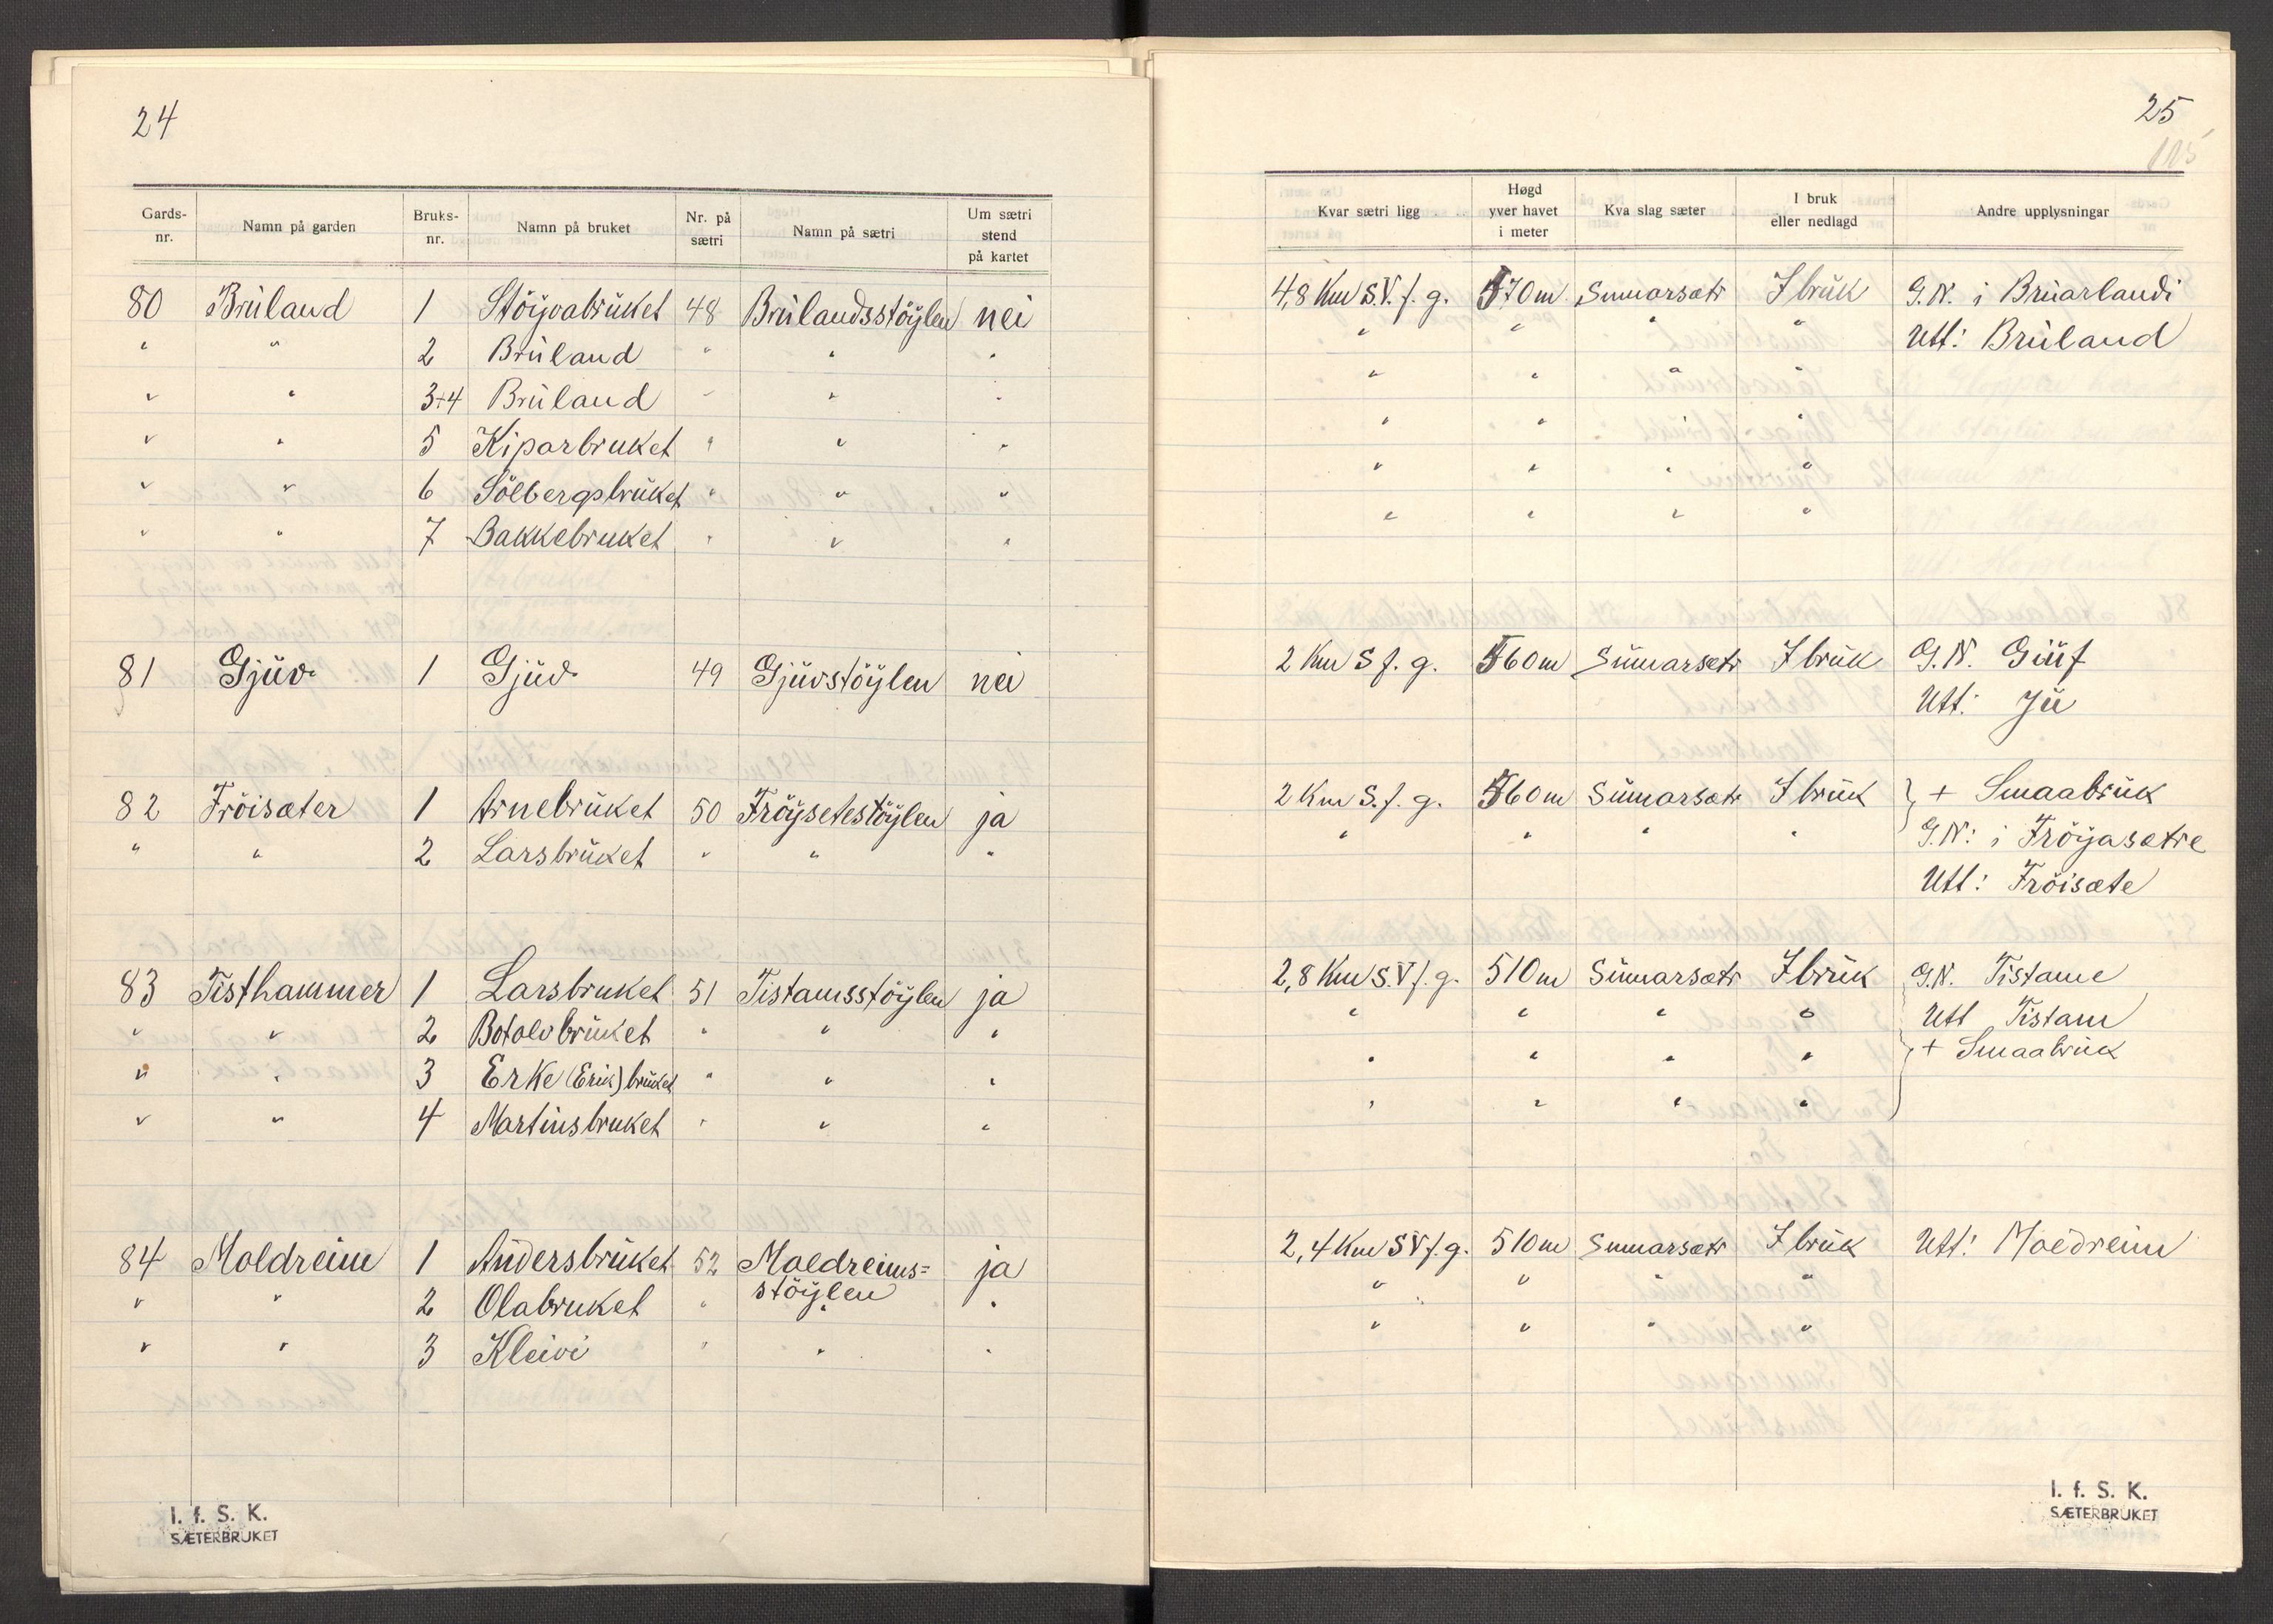 24
Gards-nr. Namn på garden Bruks-nr. Namn på bruket Nr. på sætri Namn på sætri Um sætri stend på kartet
80 Brŭland 1 Stöyvabrŭket 48 Brŭlandsstöylen nei
" " 2 Brŭland " " "
" " 3+4 Brŭland " " "
" " 5 Kiparbruket " " "
" " 6 Sölbergsbrŭket " " "
" " 7 Bakkebruket " " "
81 Gjŭv 1 Gjŭv 49 Gjŭvstöylen nei
82 Fröisæter 1 Arnebrŭket 50 Fröysetestöylen ja
" " 2 Larsbrŭket " " "
83 Tisthammer 1 Larsbruket 51 Tistamsstöylen ja
" " 2 Botolvbrŭket " " "
" " 3 Erke (Erik) brŭket " " "
" " 4 Martinsbruket " " "
84 Moldreim 1 Andersbrŭket 52 Moldreims=
stöylen ja
" " 2 Olabruket " " "
" " 3 Kleivi " " "
I. f. S. K.
SÆTERBRUKET
25
115
Kvar sætri ligg Høgd yver havet i meter Kva slag sæter I bruk eller nedlagd Andre upplysningar
4,8 Km S.V. f. g. 570 m Sumarsætr I brŭk G.N. i Brŭarlandi
" " " " Utt: Brŭland
" " " "
" " " "
" " " "
" " " "
2 Km S f. g. 560 m Sŭmarsætr I brŭk G.N. Gŭf
Utt: Jŭ
2 Km S. f. g. 560 m Sŭmarsætr I brŭk } + Smaabrŭk
" " " " G.N: i Fröyasætre
Utt: Fröisæte
2,8 Km S.V f. g. 510 m Sŭmarsætr I brŭk G.N. Tistame
" " " " Utt Tistam
" " " " + Smaabrŭk
" " " "
2,4 Km S V f. g. 510 m Sumarsætr I brŭk Utt: Moldreim
" " " "
" " " "
I. f. S. K.
SÆTERBRUKET